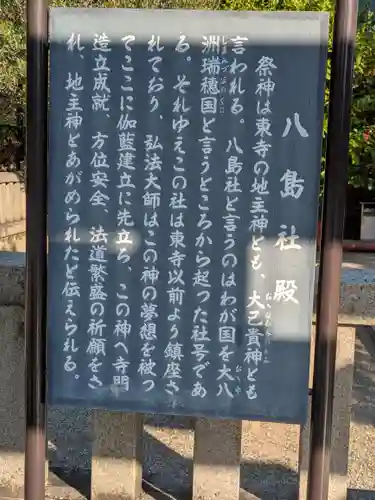 八島社殿
祭神は東寺の地主神とも、大己貴神とも
言われる。八島社と言うのはわが国を大八
洲瑞穂国と言うところから起った社号であ
る。それゆえこの社は東寺以前より鎮座さ
れており、弘法大師はこの神の夢想を被っ
てここに伽藍建立に先立ち、この神へ寺門
造立成就、方位安全、法道繁盛の祈願をさ
れ、地主神とあがめられたと伝えられる。